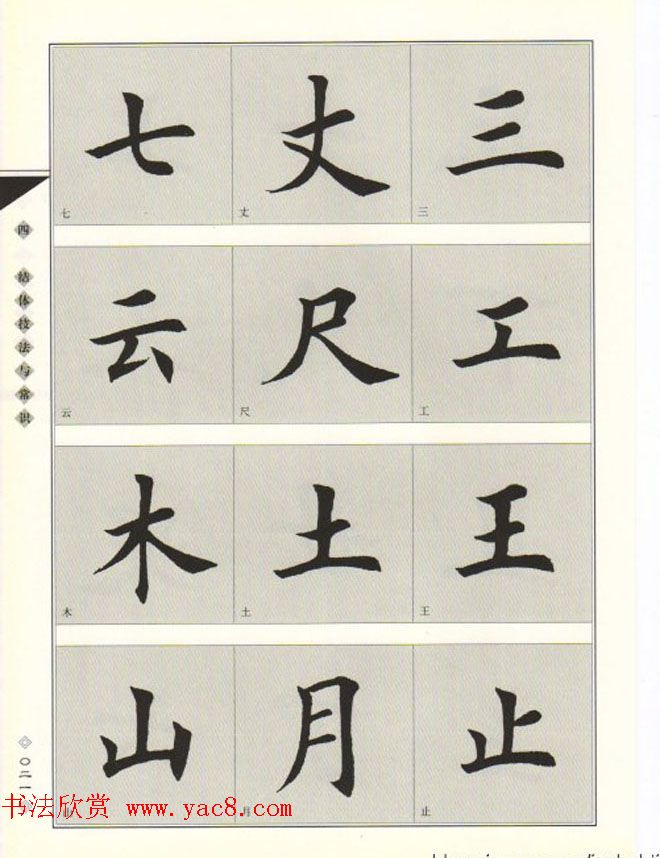 七 丈 三
七 丈 三
云 尺 工
云 尺 工
木 土 王
木 土 王
山 月 止
山 月 止
四 结体技法与常识
〇二一
书法欣赏 www.yac8.com